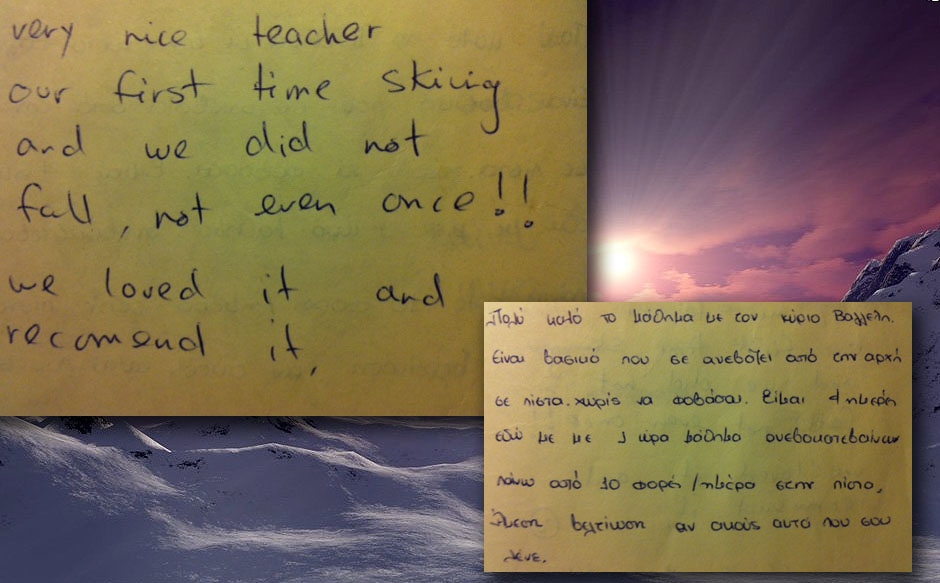 very nice teacher
our first time skiing
and we did not
fall, not even once!!
we loved it and
recomend it,
Πολύ καλό το μάθημα με τον κύριο Βαγγέλη.
Είναι βασικό που σε ανεβάζει από την αρχή
σε πίστα. χωρίς να φοβάσαι. Είμαι 4 ημέρη
εδώ με με 1 ώρα μάθημα ανεβοκατεβαίνω
πάνω από 10 φορές /ημέρα στην πίστα,
Άμεση βελτίωση αν ακούς αυτό που σου
λένε.